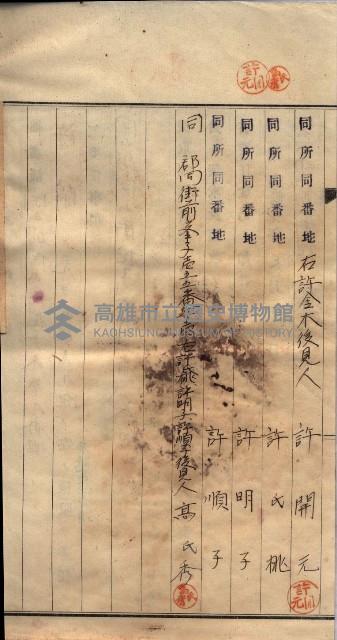 同所同番地 右許金木後見人 許開元
同所同番地 許氏桃
同所同番地 許明子
同所同番地 許順子
同郡同街前峯子壱五五番地 右許氏桃許明子許順子後見人 高氏秀
許開元
高雄市立歷史博物館
KAOHSIUNG MUSEUM OF HISTORY